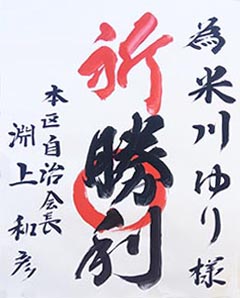 為 米川ゆり様
祈勝利
本区自治会長
淵上和彦